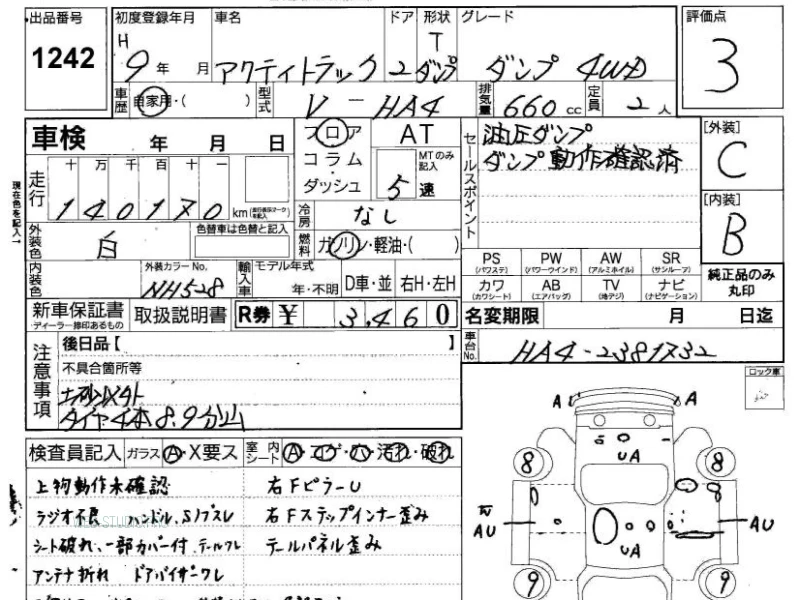 出品番号 1242
初度登録年月 H 9年 月
車名 アクティトラック
ドア 2
形状 T ダンプ
グレード ダンプ 4WD
評価点 3
車歴 自家用・( )
型式 V-HA4
排気量 660cc
定員 2人
車検 年 月 日
フロア AT
コラム MTのみ記入
ダッシュ 5速
セールスポイント
油圧ダンプ
ダンプ動作確認済
[外装] C
[内装] B
走行 十万千百十一
140170 km
現在色を記入
冷房 なし
外装色 白
色替車は色替と記入
燃料 ガソリン・軽油・( )
内装色
外装カラーNo. NH528
輸入車 モデル年式 年・不明 D車・並 右H・左H
PS (パワステ) PW (パワーウインド) AW (アルミホイル) SR (サンルーフ)
カワ (カワシート) AB (エアバッグ) TV (地デジ) ナビ (ナビゲーション)
純正品のみ丸印
新車保証書 ディーラー捺印あるもの
取扱説明書
R券 ¥ 3,460
名変期限 月 日迄
車台No. HA4-2381732
注意事項
後日品【 】
不具合箇所等
タイヤ4本8.9分山
ロック車
検査員記入 ガラス A・X要ス
室内シート A・コゲ・穴・汚れ・破れ
上物動作未確認 右FピラーU
ラジオ不良 ハンドル、S/ブスレ 右Fステップインナー歪み
シート破れ、一部カバー付 テールワレ テールパネル歪み
アンテナ折れ ドアバイザーワレ
A A
UA
8 8
AU AU
UA
9 9